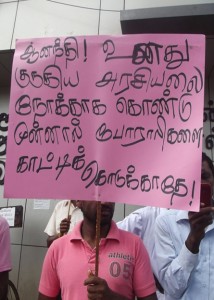 ஆனந்தி! உனது
குறுகிய அரசியலை
நோக்காக கொண்டு
முன்னாள் போராளிகளை
காட்டிக் கொடுக்காதே!
athletic
05